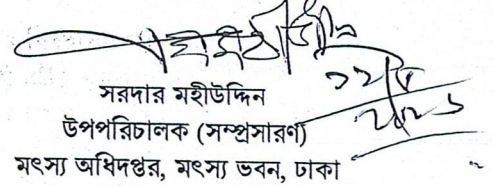 সরদার মহীউদ্দিন
উপপরিচালক (সম্প্রসারণ)
মৎস্য অধিদপ্তর, মৎস্য ভবন, ঢাকা